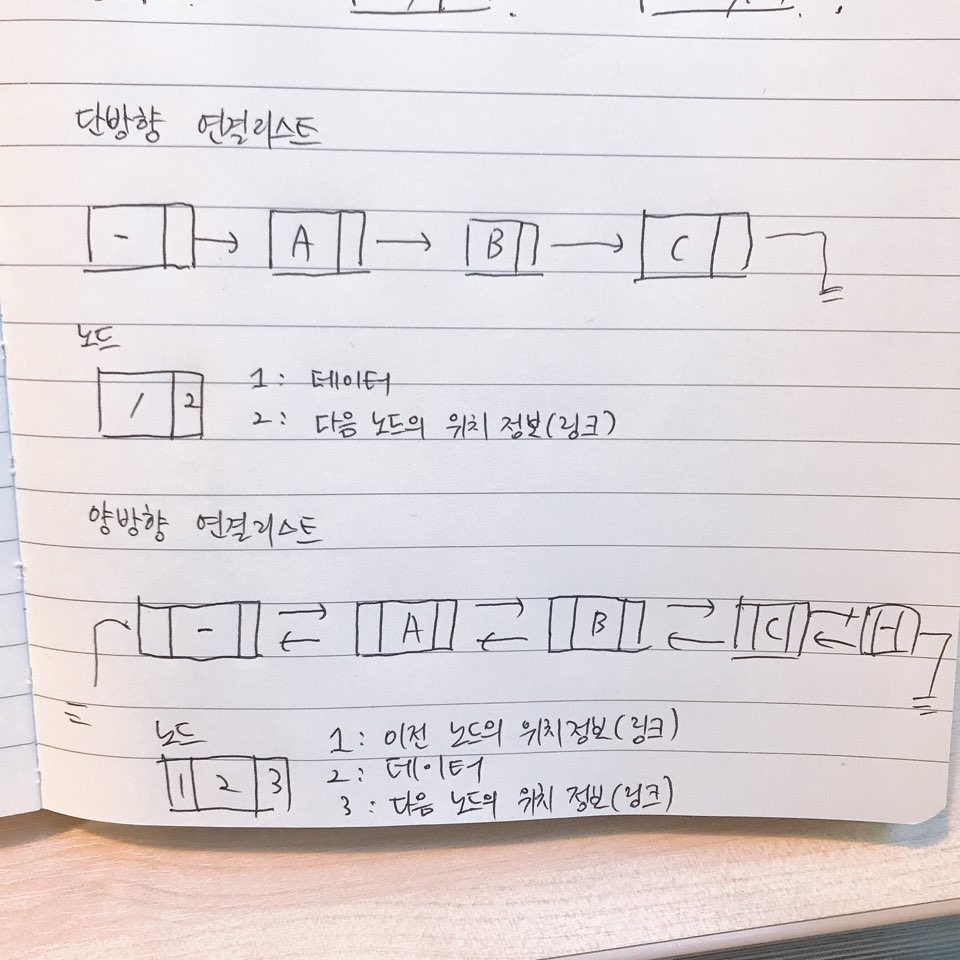 단방향 연결리스트
- A B C
노드
1 2
1: 데이터
2: 다음 노드의 위치 정보(링크)
양방향 연결리스트
- A B C -
노드
1: 이전 노드의 위치정보(링크)
1 2 3
2: 데이터
3: 다음 노드의 위치 정보(링크)